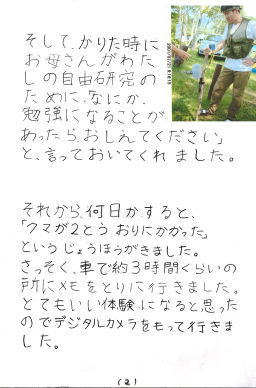 そして、かりた時に
お母さんがわた
しの自由研究の
ために、なにか、
勉強になることが
あったら、おしえてください」
と、言っておいてくれました。
それから、何日かすると、
「クマが2とう おりにかかった」
というじょうほうがきました。
さっそく、車で約3時間くらいの
所にメモをとりに行きました。
とてもいい体験になると思った
のでデジタルカメラをもって行きま
した。
(2)